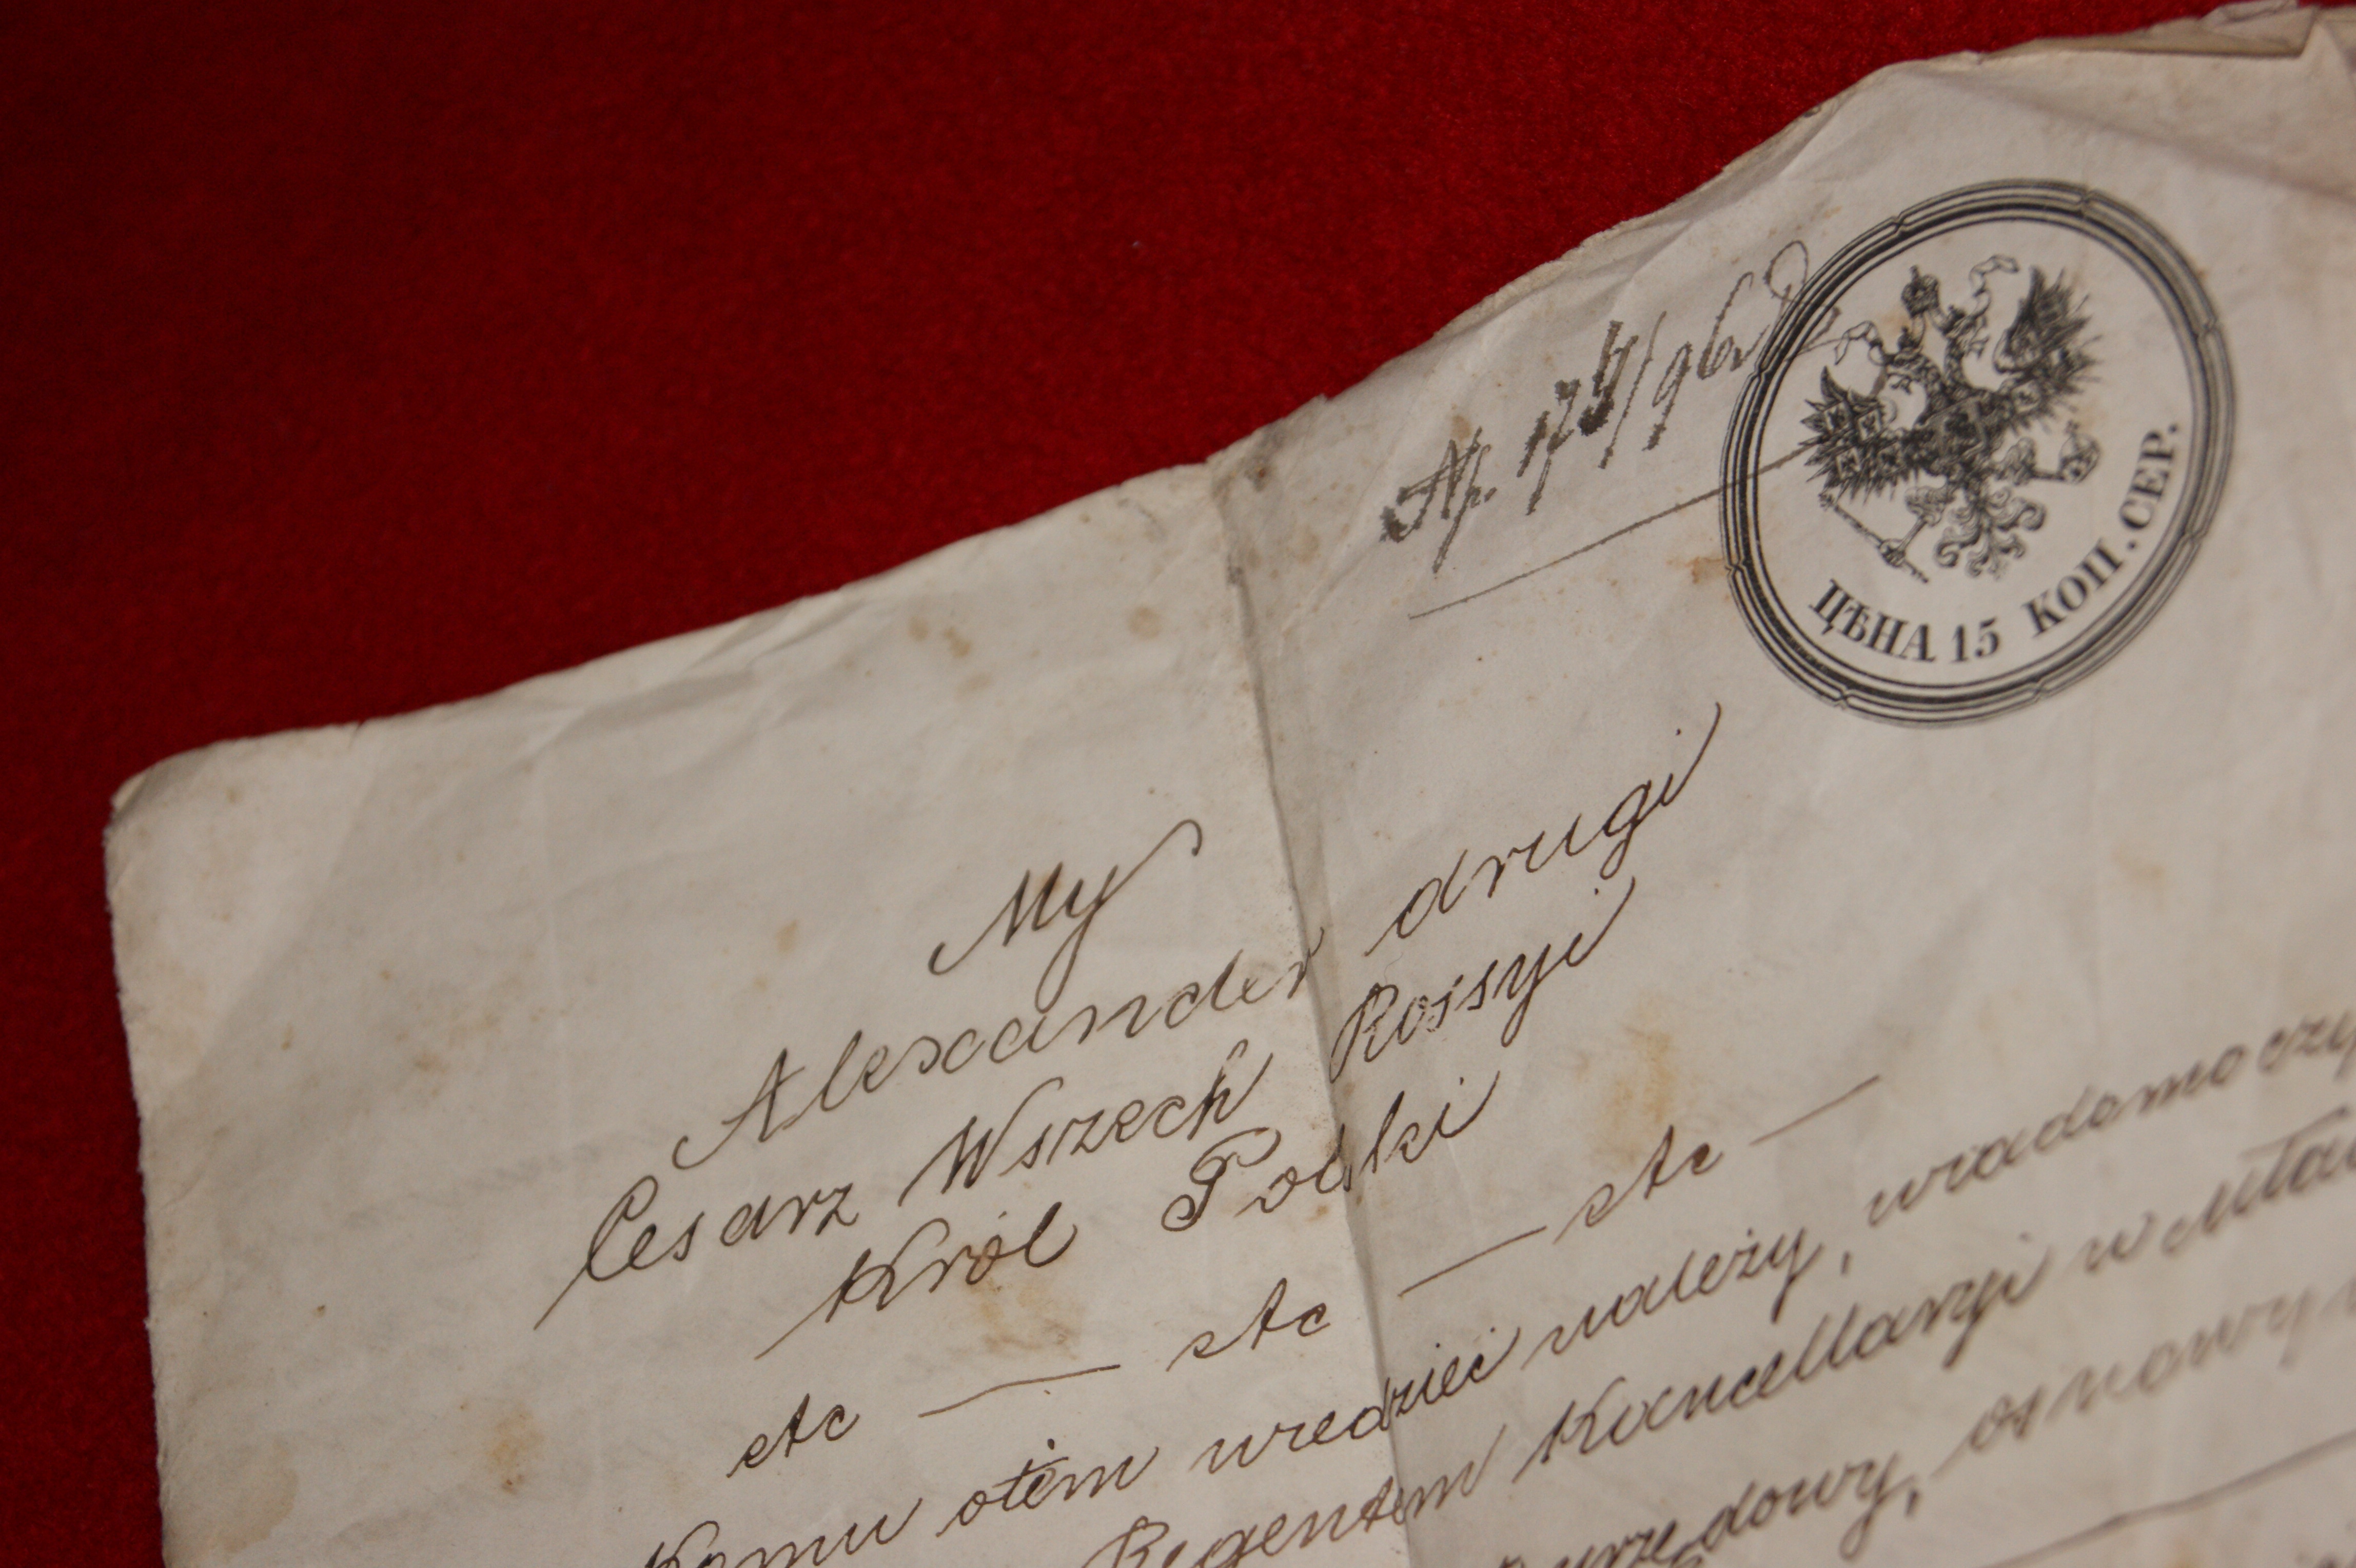 Nr. 174/96
ЦѢНА 15 КОП. СЕР.
My
Alexander drugi
Cesarz Wszech Rossyi
Król Polski
etc — etc — etc —
Komu otém wiedzieć należy, wiadomo czy
Regentem Kancellaryi w
urzędowy, osnowy